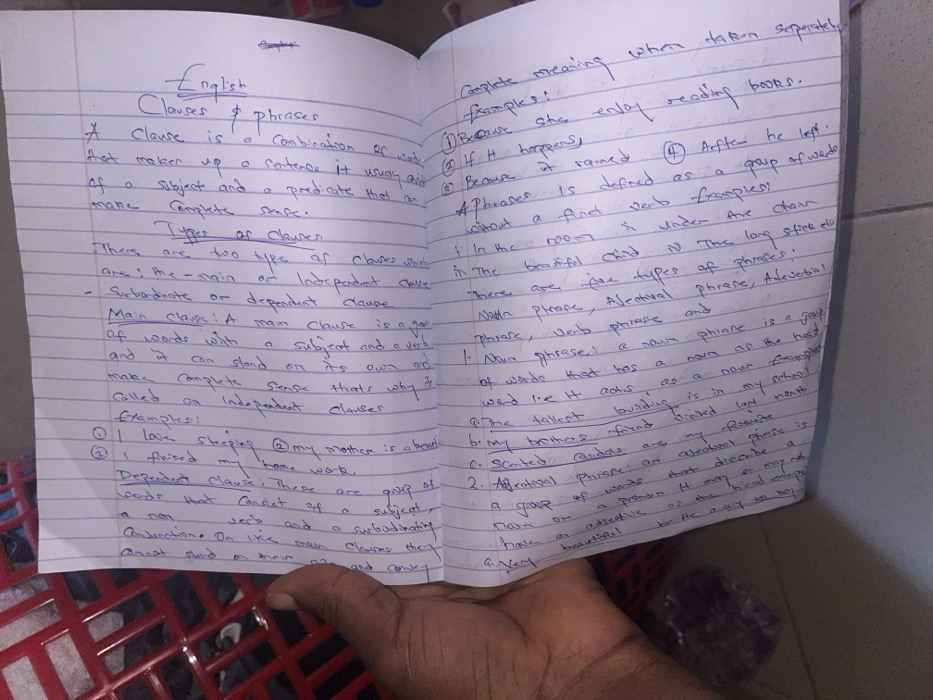 English
Clauses & phrases
A Clause is a Combination of words
that makes up a sentence it usually
of a subject and a predicate that
make Complete sense.
Types of Clauses
There are two type of Clauses which
are; the - main or Independent Clause
- Subordinate or dependent Clause
Main Clause: A main Clause is a
of words with a subject and a verb
and it can stand on its own and
make complete Sense thats why it
called an Independent Clauses
Examples:
① I love sleeping ② my mother is a
② I finised my home work.
Dependent Clause: These are group of
words that Consist of a subject,
a verb and a subordinating
Conjunction. On like main Clauses they
Cannot stand on their and convey
Complete meaning when taken seperately
Examples:
① Because she enjoy reading books.
② If it happens,
③ Because it rained ④ After he left.
A Phrases is defined as a group of words
without a finit verb Examples:
i In the room ii under the chair
iii The beatiful Child iv The long stick etc
There are five types of phrases:
Noun phrase, phrase, Adverbial
phrase, verb phrase and
1. Noun phrase: a noun phrase is a group
of words that has a noun as the head
word i.e it acts as a noun Examples
a. The tallest building is in my school
b. My brothers friend visited last month
c. Scented candles are my favorite
2. phrase: an phrase is
a group of words that discribe a
noun or a pronoun It may or may not
have an adjective as the head
a. Very beautiful